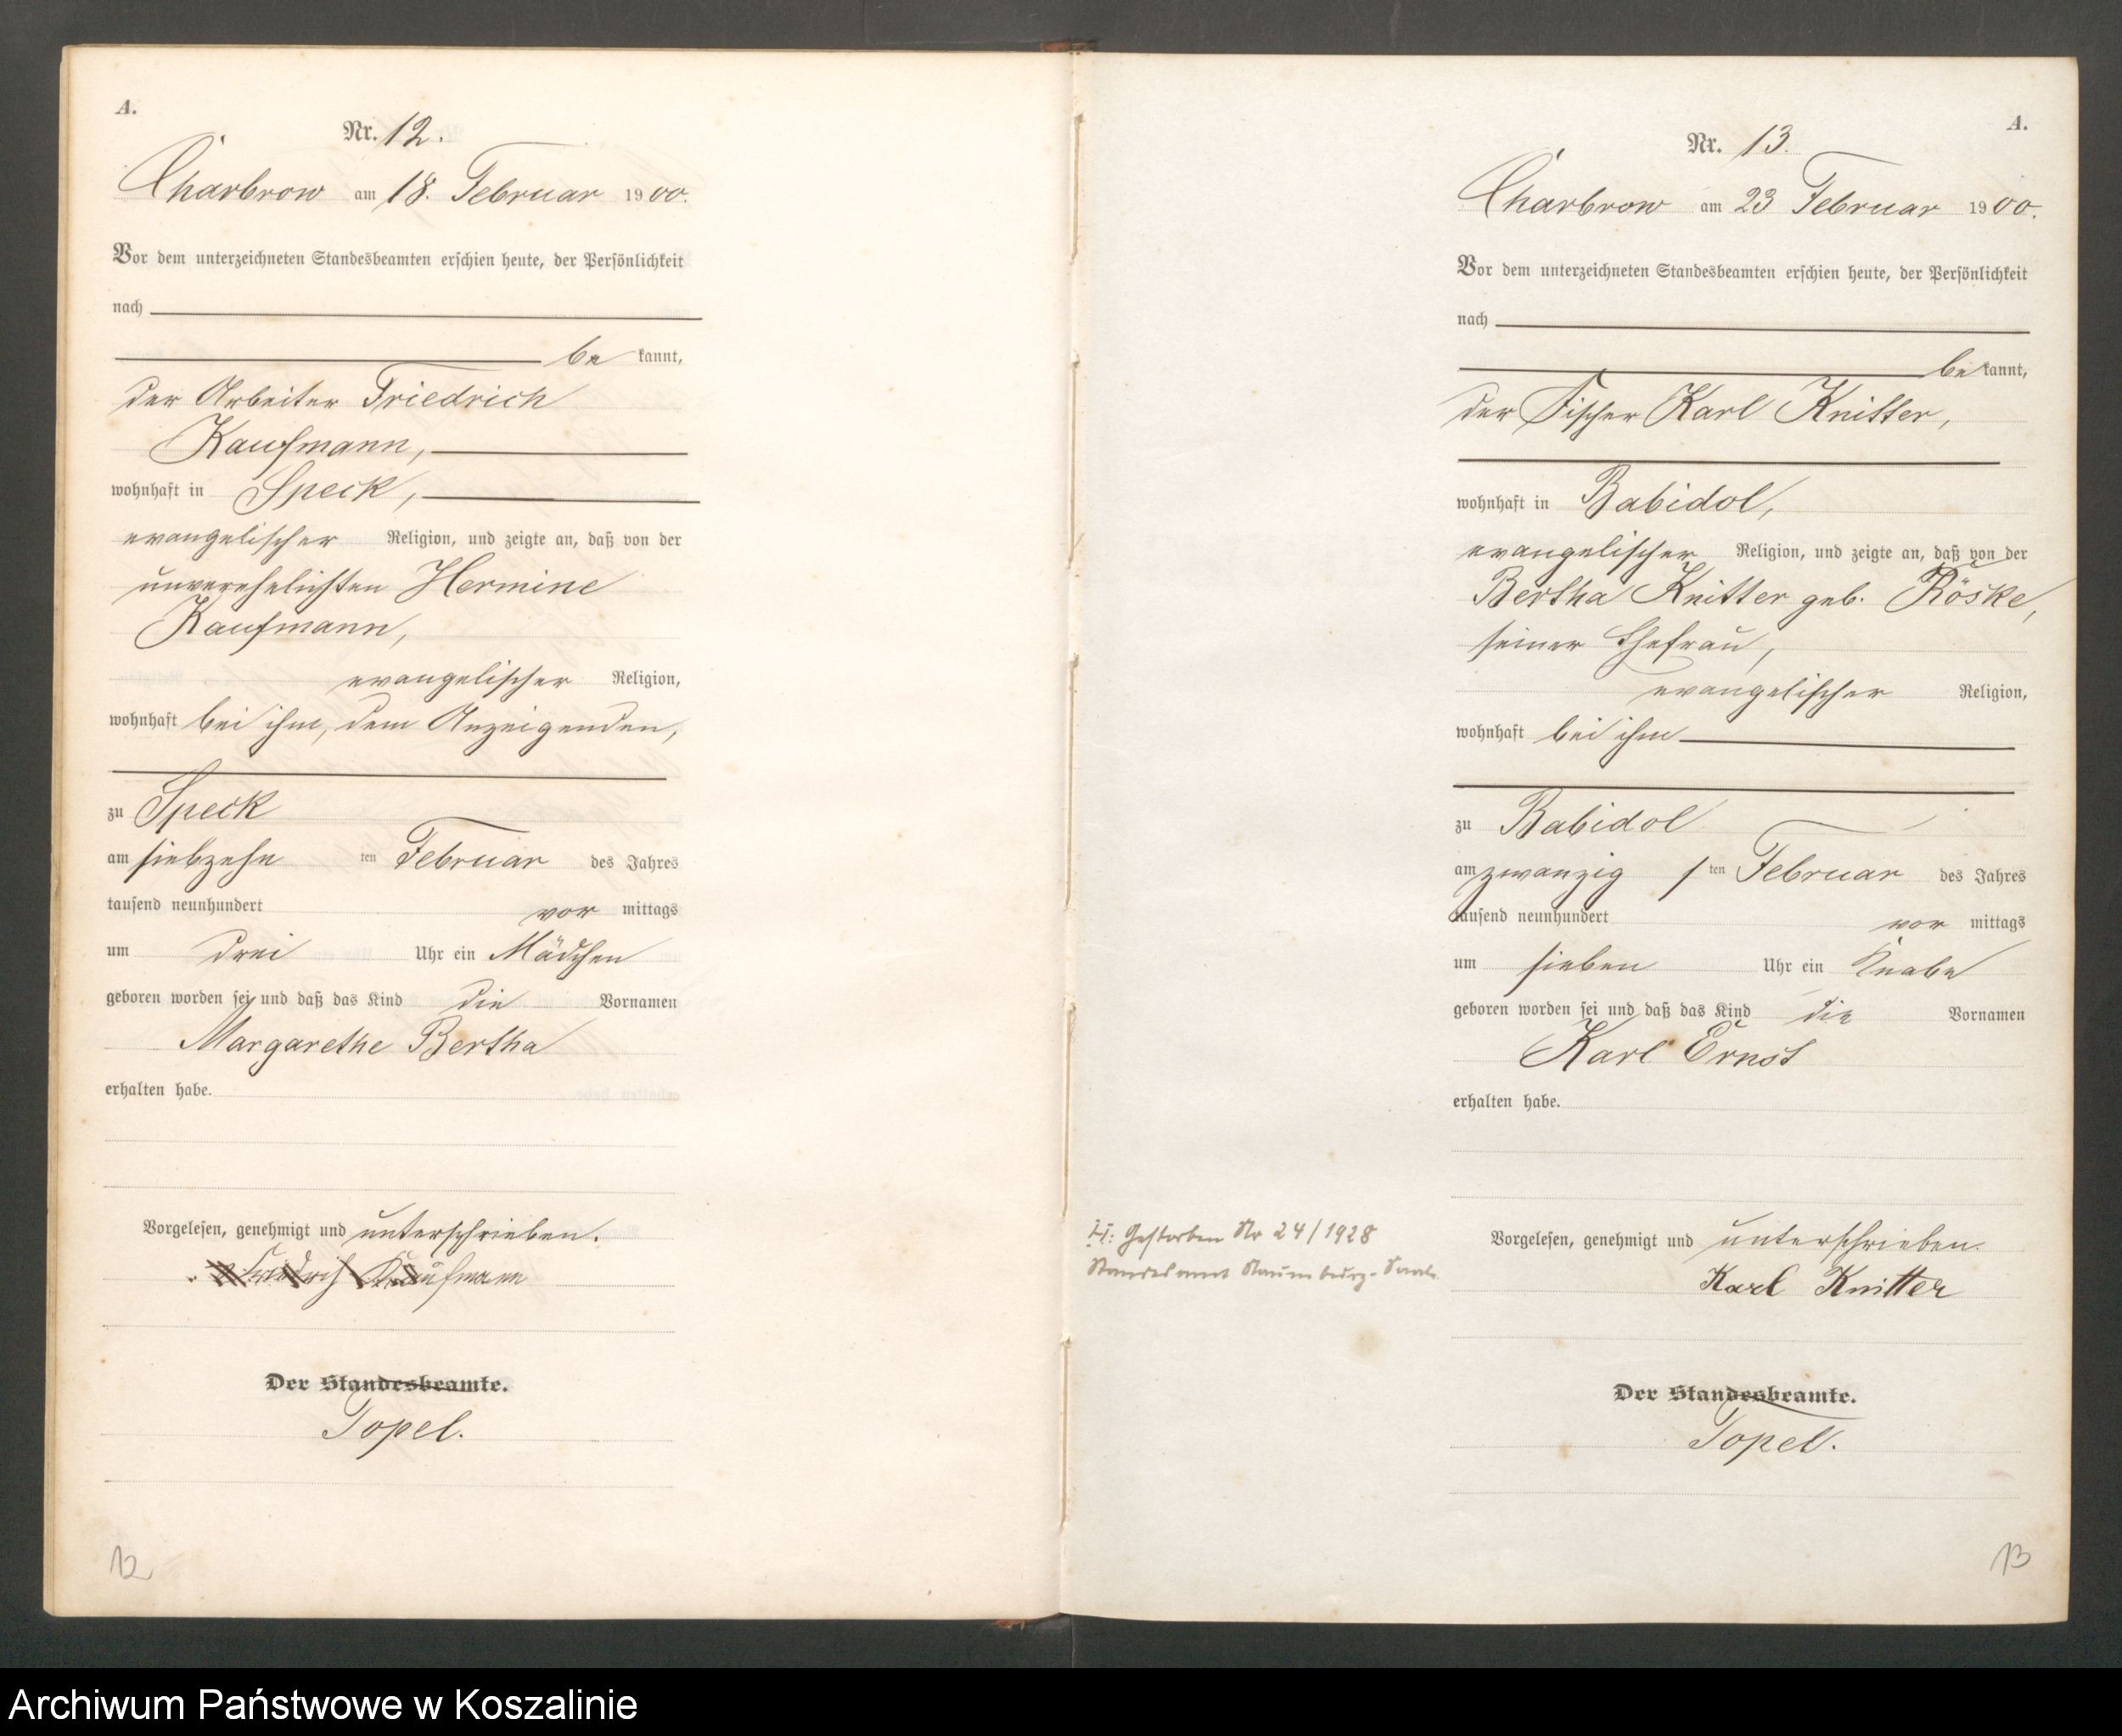 A.
Nr. 12.
Charbrow am 18. Februar 1900.
Vor dem unterzeichneten Standesbeamten erschien heute, der Persönlichkeit
nach
be kannt,
der Arbeiter Friedrich
Kaufmann,
wohnhaft in Speck,
evangelischer Religion, und zeigte an, daß von der
unverehelichten Hermine
Kaufmann,
evangelischer Religion,
wohnhaft bei ihm, dem Anzeigenden,
zu Speck
am siebzehn ten Februar des Jahres
tausend neunhundert vor mittags
um drei Uhr ein Mädchen
geboren worden sei und daß das Kind die Vornamen
Margarethe Bertha
erhalten habe.
Vorgelesen, genehmigt und unterschrieben.
Friedrich Kaufmann
Der Standesbeamte.
Topel.
12
A.
Nr. 13.
Charbrow am 23 Februar 1900.
Vor dem unterzeichneten Standesbeamten erschien heute, der Persönlichkeit
nach
be kannt,
der Fischer Karl Knitter,
wohnhaft in Babidol,
evangelischer Religion, und zeigte an, daß von der
Bertha Knitter geb. Röske,
seiner Ehefrau,
evangelischer Religion,
wohnhaft bei ihm
zu Babidol
am zwanzig ten Februar des Jahres
tausend neunhundert vor mittags
um sieben Uhr ein Knabe
geboren worden sei und daß das Kind die Vornamen
Karl Ernst
erhalten habe.
Vorgelesen, genehmigt und unterschrieben.
Karl Knitter
Der Standesbeamte.
Topel.
H: Gestorben Nr 24/1928
Standesamt Naumburg-Saale
13
Archiwum Państwowe w Koszalinie